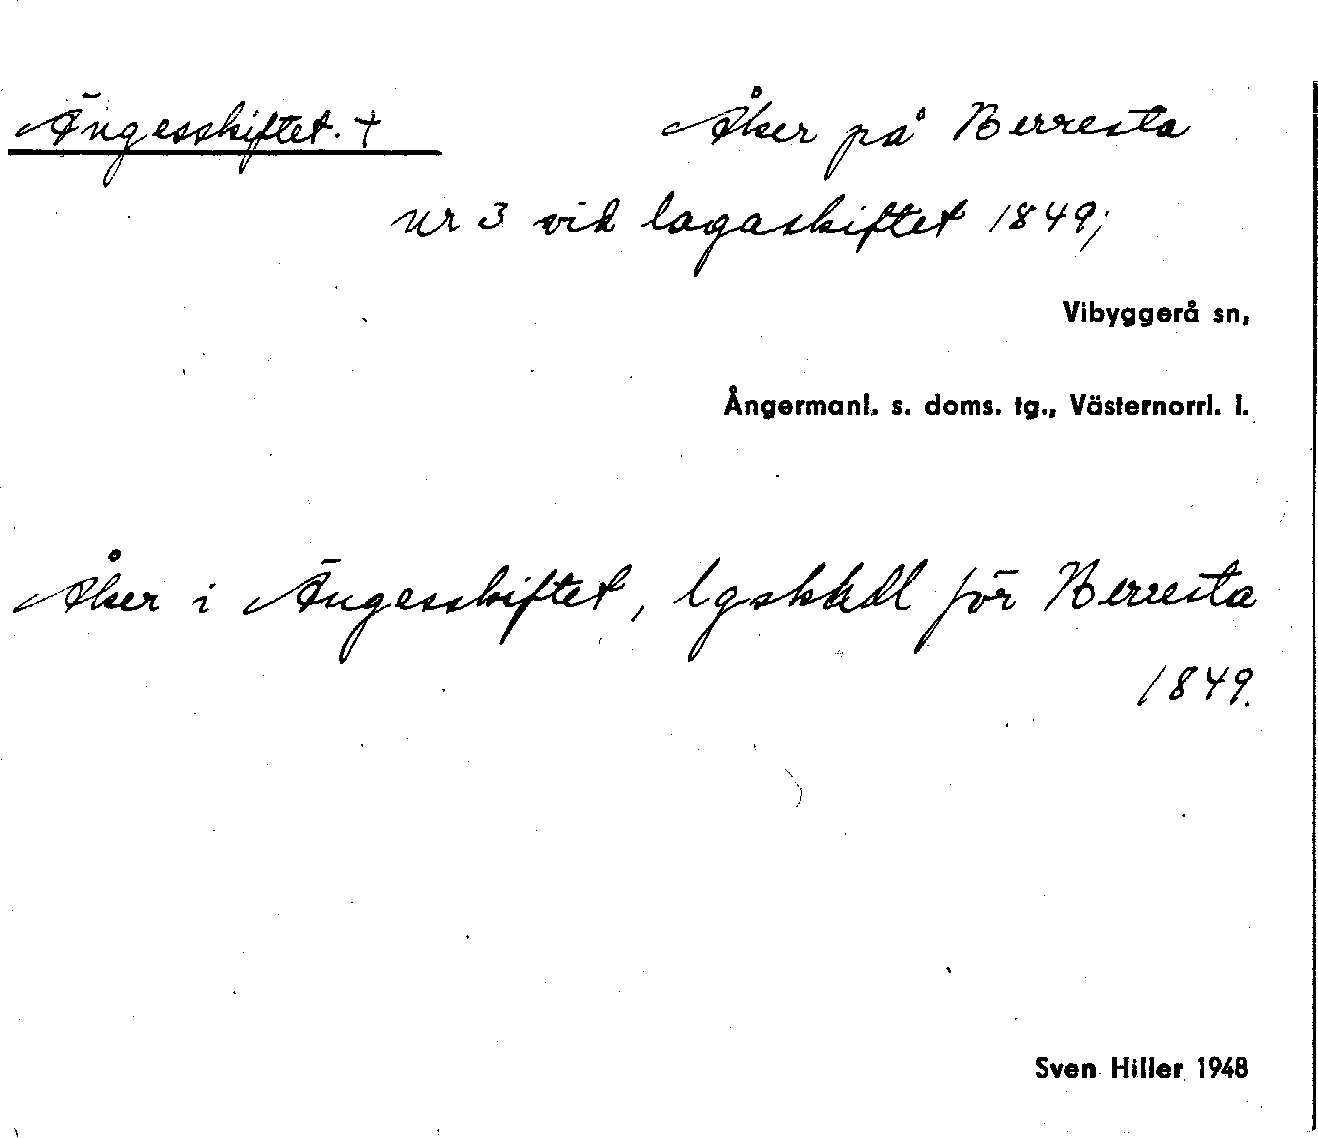 Ängesskiftet. † Åker på Berresta
nr 3 vid lagaskiftet 1849;
Vibyggerå sn,
Ångermanl. s. doms. tg., Västernorrl. l.
Åker i Ängesskiftet, för Berresta
1849.
Sven Hiller 1948